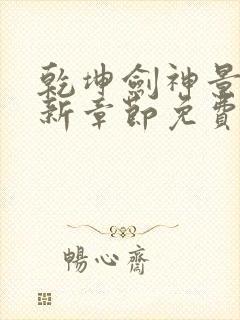 乾坤劍神景
新章節免費
暢心齋